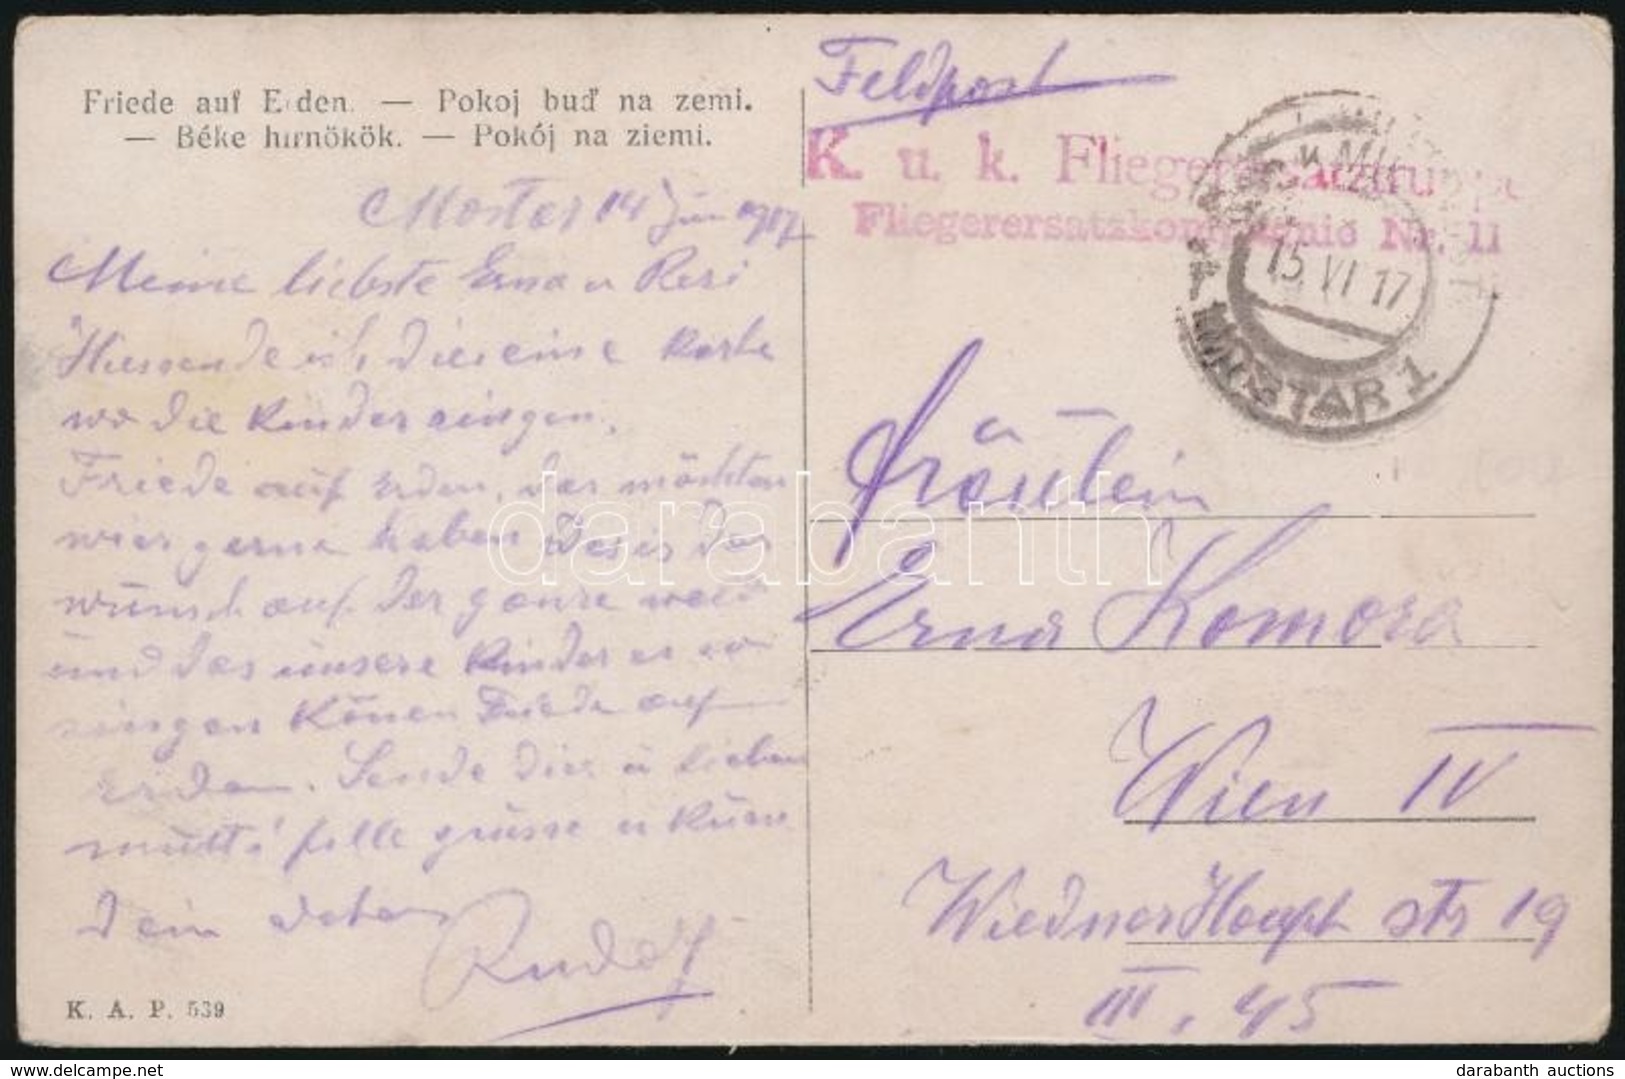 Friede auf Erden. — Pokoj buď na zemi.
— Béke hirnökök. — Pokój na ziemi.
Mostar 14 Juni 1917
Meine liebste Erna u Resi
sende ich dier eine Karte
wo die Kinder singen.
Friede auf Erden, das möchten
wier gerne haben das is der
wunsch auf der ganze welt
und das unsere Kinder es so
singen könen Friede auf
Erden. Sende dier u lieben
mutti grüsse u Küsse
dein
Rudolf
K. A. P. 539
Feldpost
K. u. k. Fliegerersatztruppe
Fliegerersatzkompanie Nr. 11
15. VI 17
MOSTAR 1
Fräulein
Erna Komora
Wien IV
Wiedner Haupt str 19
III, 45
darabanth
delcampe.net
darabanth auctions